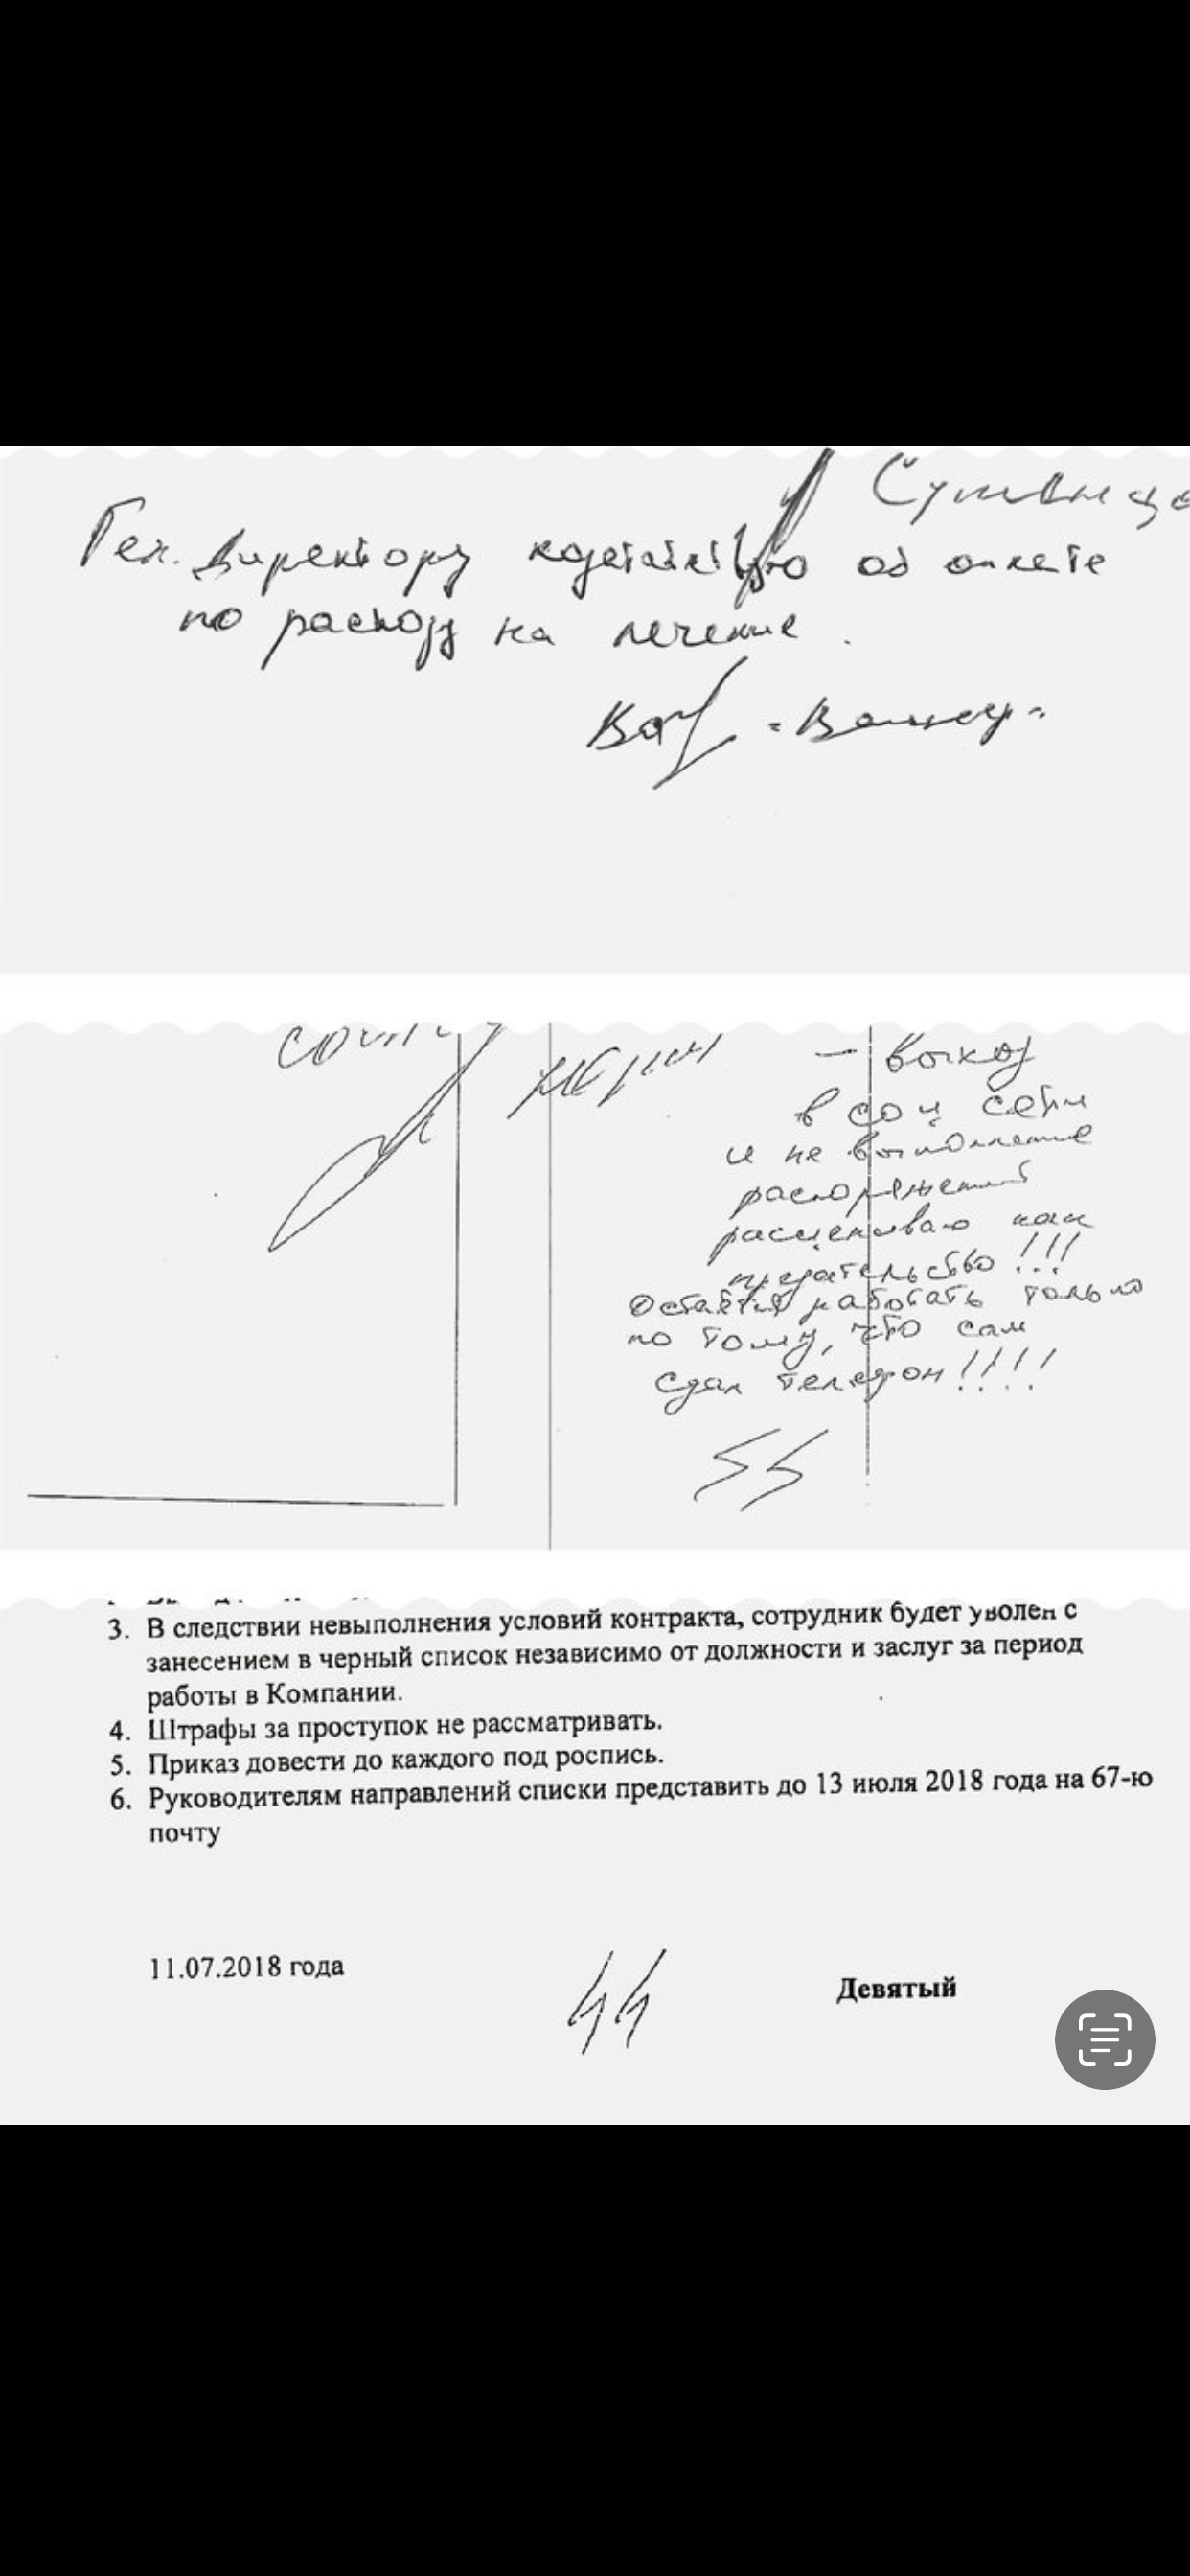 Ген. директору
об оплате
по расходу на лечение.
— выход
в соц сети
и не выполнение
распоряжений
расцениваю как
предательство!!!
Остаётся работать только
по тому, что сам
сдал телефон!!!!
3. В следствии невыполнения условий контракта, сотрудник будет уволен с
занесением в черный список независимо от должности и заслуг за период
работы в Компании.
4. Штрафы за проступок не рассматривать.
5. Приказ довести до каждого под роспись.
6. Руководителям направлений списки представить до 13 июля 2018 года на 67-ю
почту
11.07.2018 года
Девятый